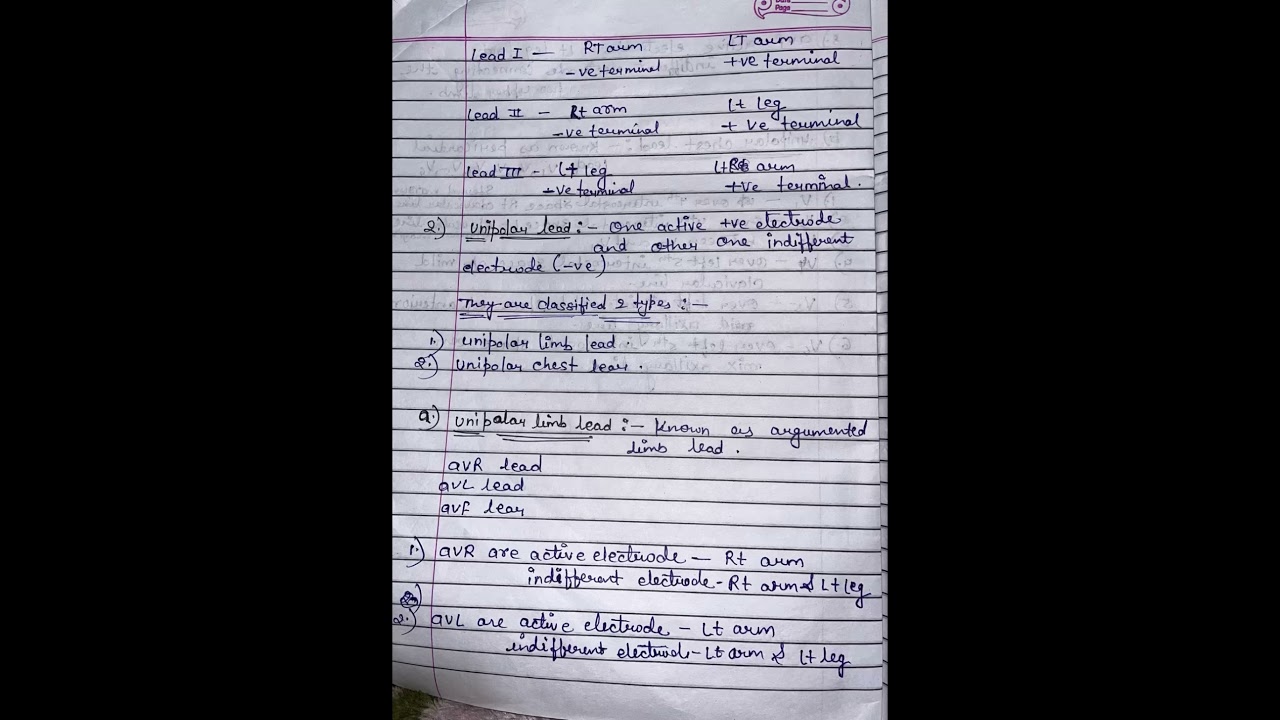 Page
Lead I — Rt arm LT arm
-ve terminal +ve terminal
Lead II - Rt arm Lt leg
-ve terminal + ve terminal
Lead III - Lt leg Lt arm
+ve terminal +ve terminal.
2.) Unipolar lead :- One active +ve electrode
and other one indifferent
electrode (-ve)
They are classified 2 types :-
1.) unipolar limb lead.
2.) Unipolar chest lear.
a.) Unipolar limb lead :- Known as argumented
limb lead.
avR lead
avL lead
avf lear
1.) avR are active electrode — Rt arm
indifferent electrode - Rt arm & Lt leg
2.) avL are active electrode - Lt arm
indifferent electrod - Lt arm & Lt leg